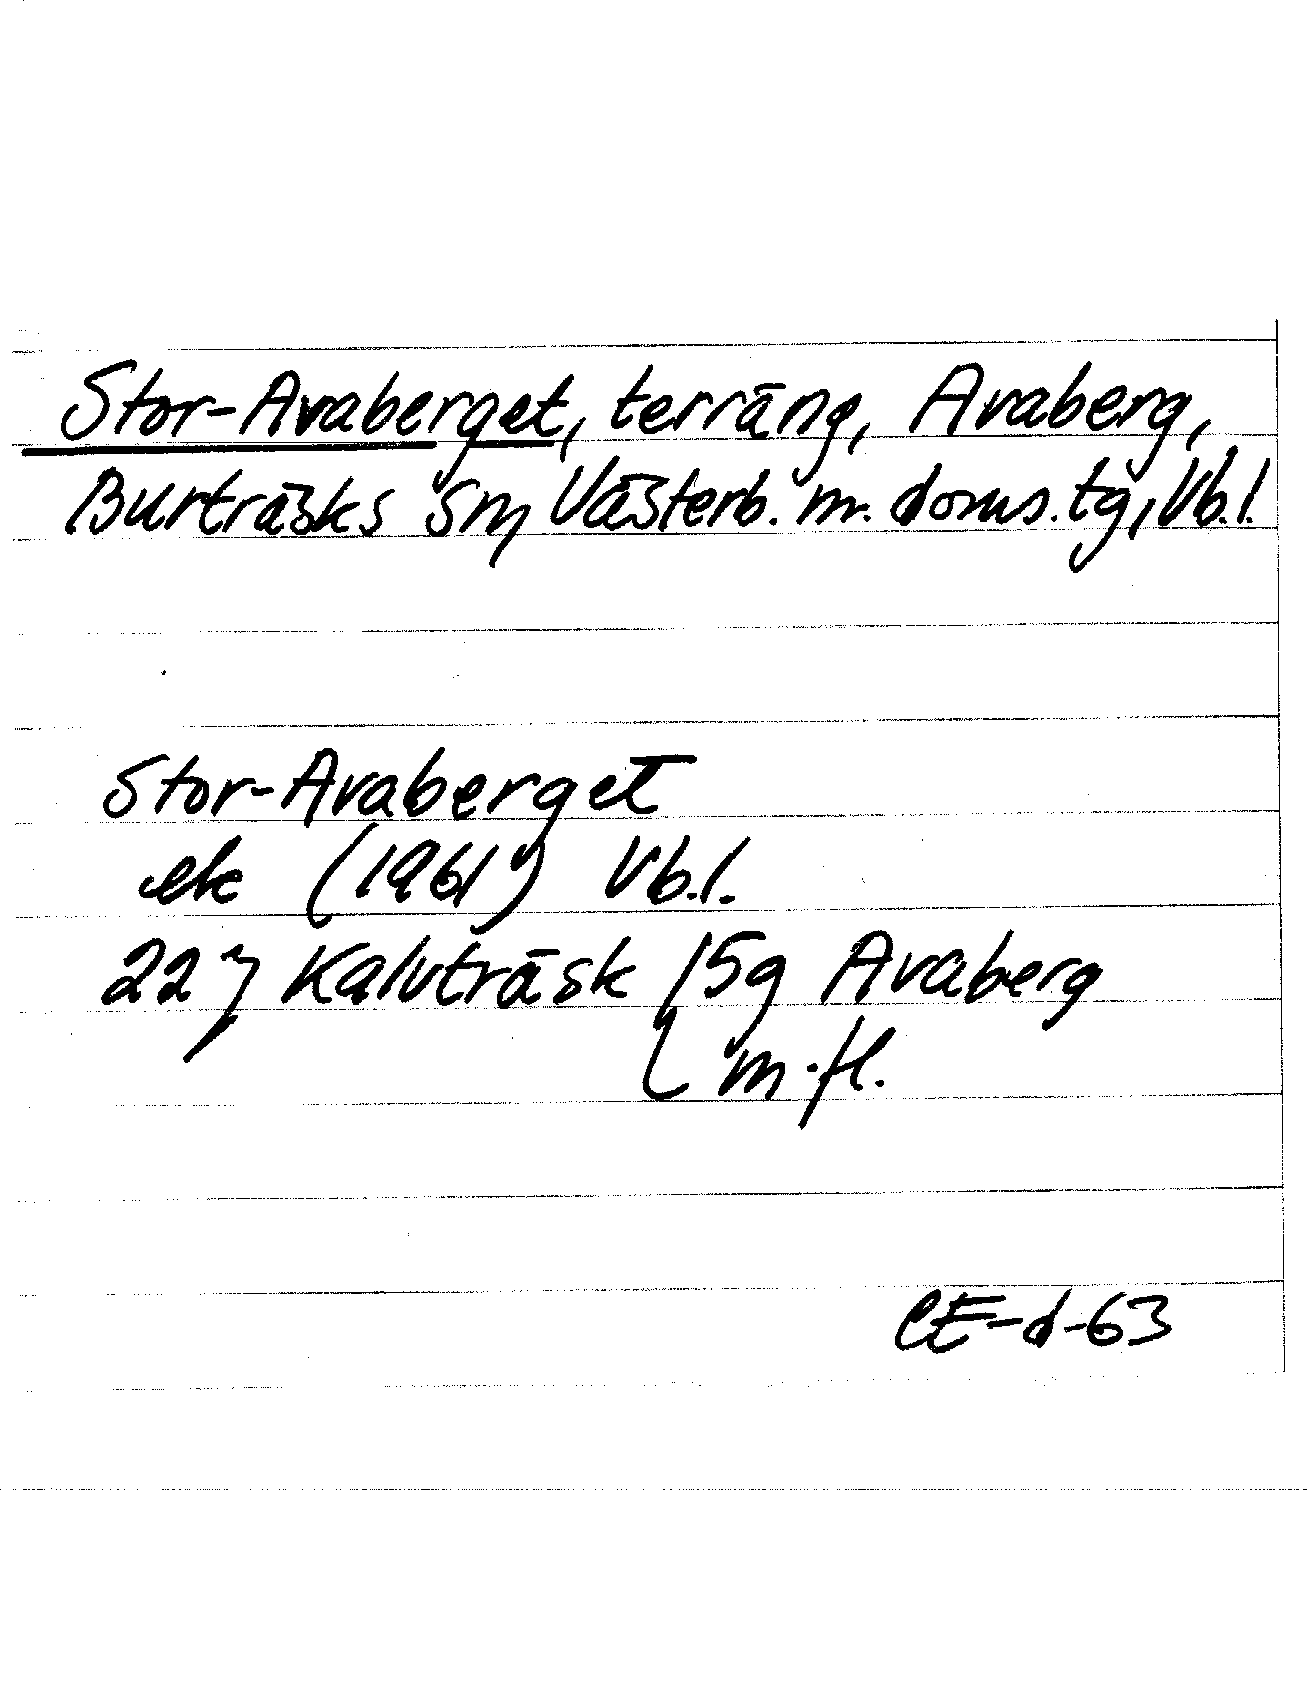 Stor-Avaberget, terräng, Avaberg,
Burträsks sn, Västerb. m. doms. tg, Vb.l.
Stor-Avaberget
ek (1961) Vb.l.
22 J Kalvträsk /5g Avaberg
m.fl.
CE-d-63